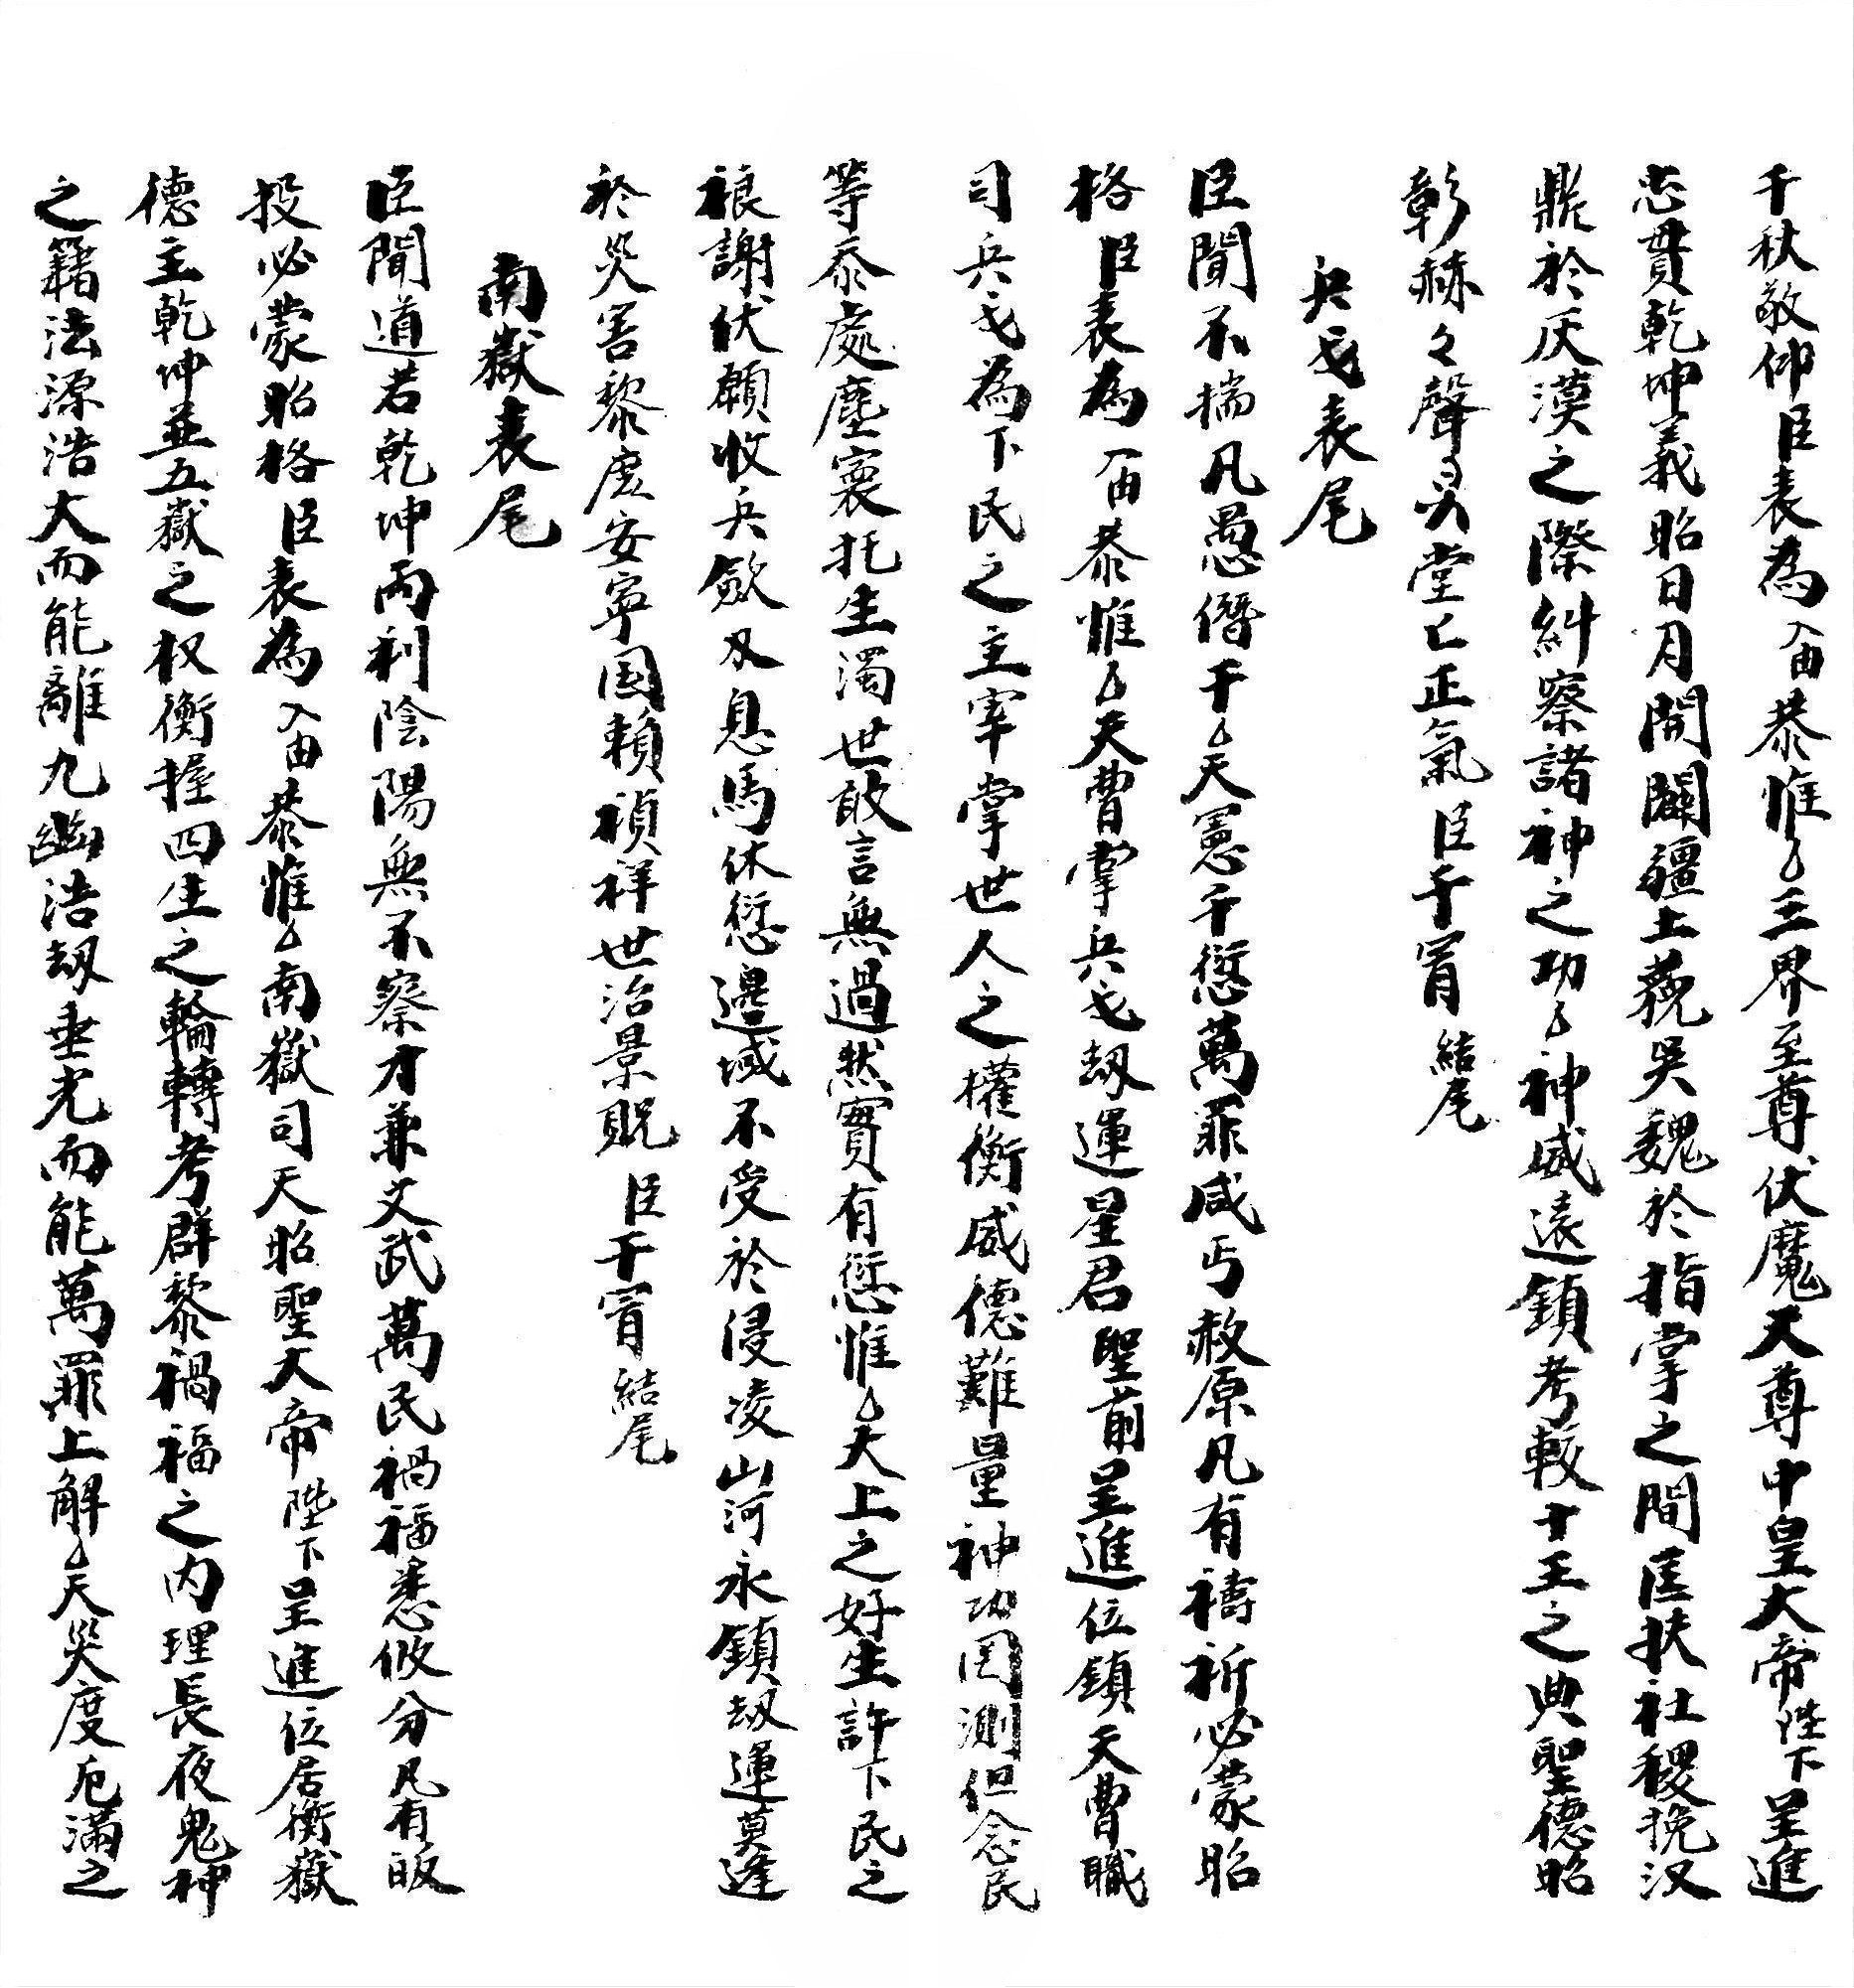 千秋敬仰臣表為入啇恭惟〻三界至尊伏魔天尊中皇大帝陛下呈進
忠貫乾坤義昭日月開闢疆土藐吳魏於指掌之間匡扶社稷挽汉
鼎於灰漠之際糾察諸神之功〻神威遠鎮考較十王之典聖德昭
彰赫々聲灵堂〻正氣臣干冒 結尾
兵戈表尾
臣聞不揣凡愚僭干〻天憲千愆萬罪咸丐赦原凡有禱祈必蒙昭
格臣表為入啇恭惟〻天曹掌兵戈劫運星君聖前呈進位鎮天曹職
司兵戈為下民之主宰掌世人之權衡威德難量神功罔測但念民
等忝處塵寰托生濁世敢言無過然實有愆惟〻大上之好生許下民之
禳謝伏願收兵歛刃息馬休愆邊域不受於侵凌山河永鎮劫運莫逢
於災害黎庶安寧国賴禎祥世治景貺臣干冒 結尾
南嶽表尾
臣聞道若乾坤丙利陰陽無不察才兼文武萬民禍福悉攸分凡有皈
投必蒙昭格臣表為入啇恭惟〻南嶽司天昭聖大帝陛下呈進位居衡嶽
德主乾坤並五嶽之权衡握四生之輪轉考群黎禍福之内理長夜鬼神
之籍法源浩大而能離九幽浩劫垂光而能萬罪上解〻天災度厄滿之